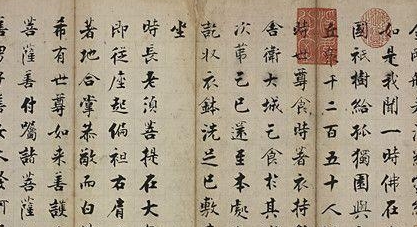 如是我聞一時佛在
國祇樹給孤獨園與
丘衆千二百五十人
時世尊食時著衣持
舍衛大城乞食於其
次第乞已還至本處
訖收衣鉢洗足已敷
坐
時長老須菩提在大
即從座起偏袒右肩
著地合掌恭敬而白
希有世尊如来善護
菩薩善付囑諸菩薩
善男子善女人發阿